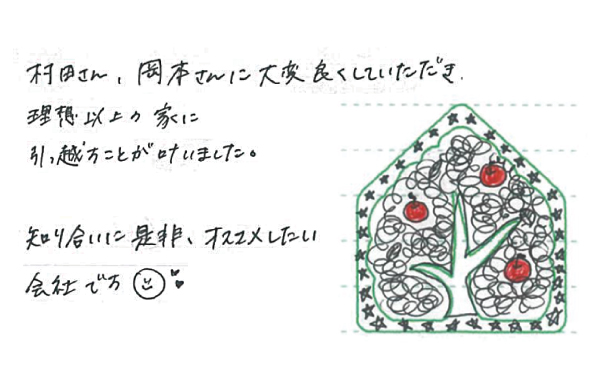 村田さん、岡本さんに大変良くしていただき、
理想以上の家に
引っ越すことが叶いました。
知り合いに是非、オススメしたい
会社です